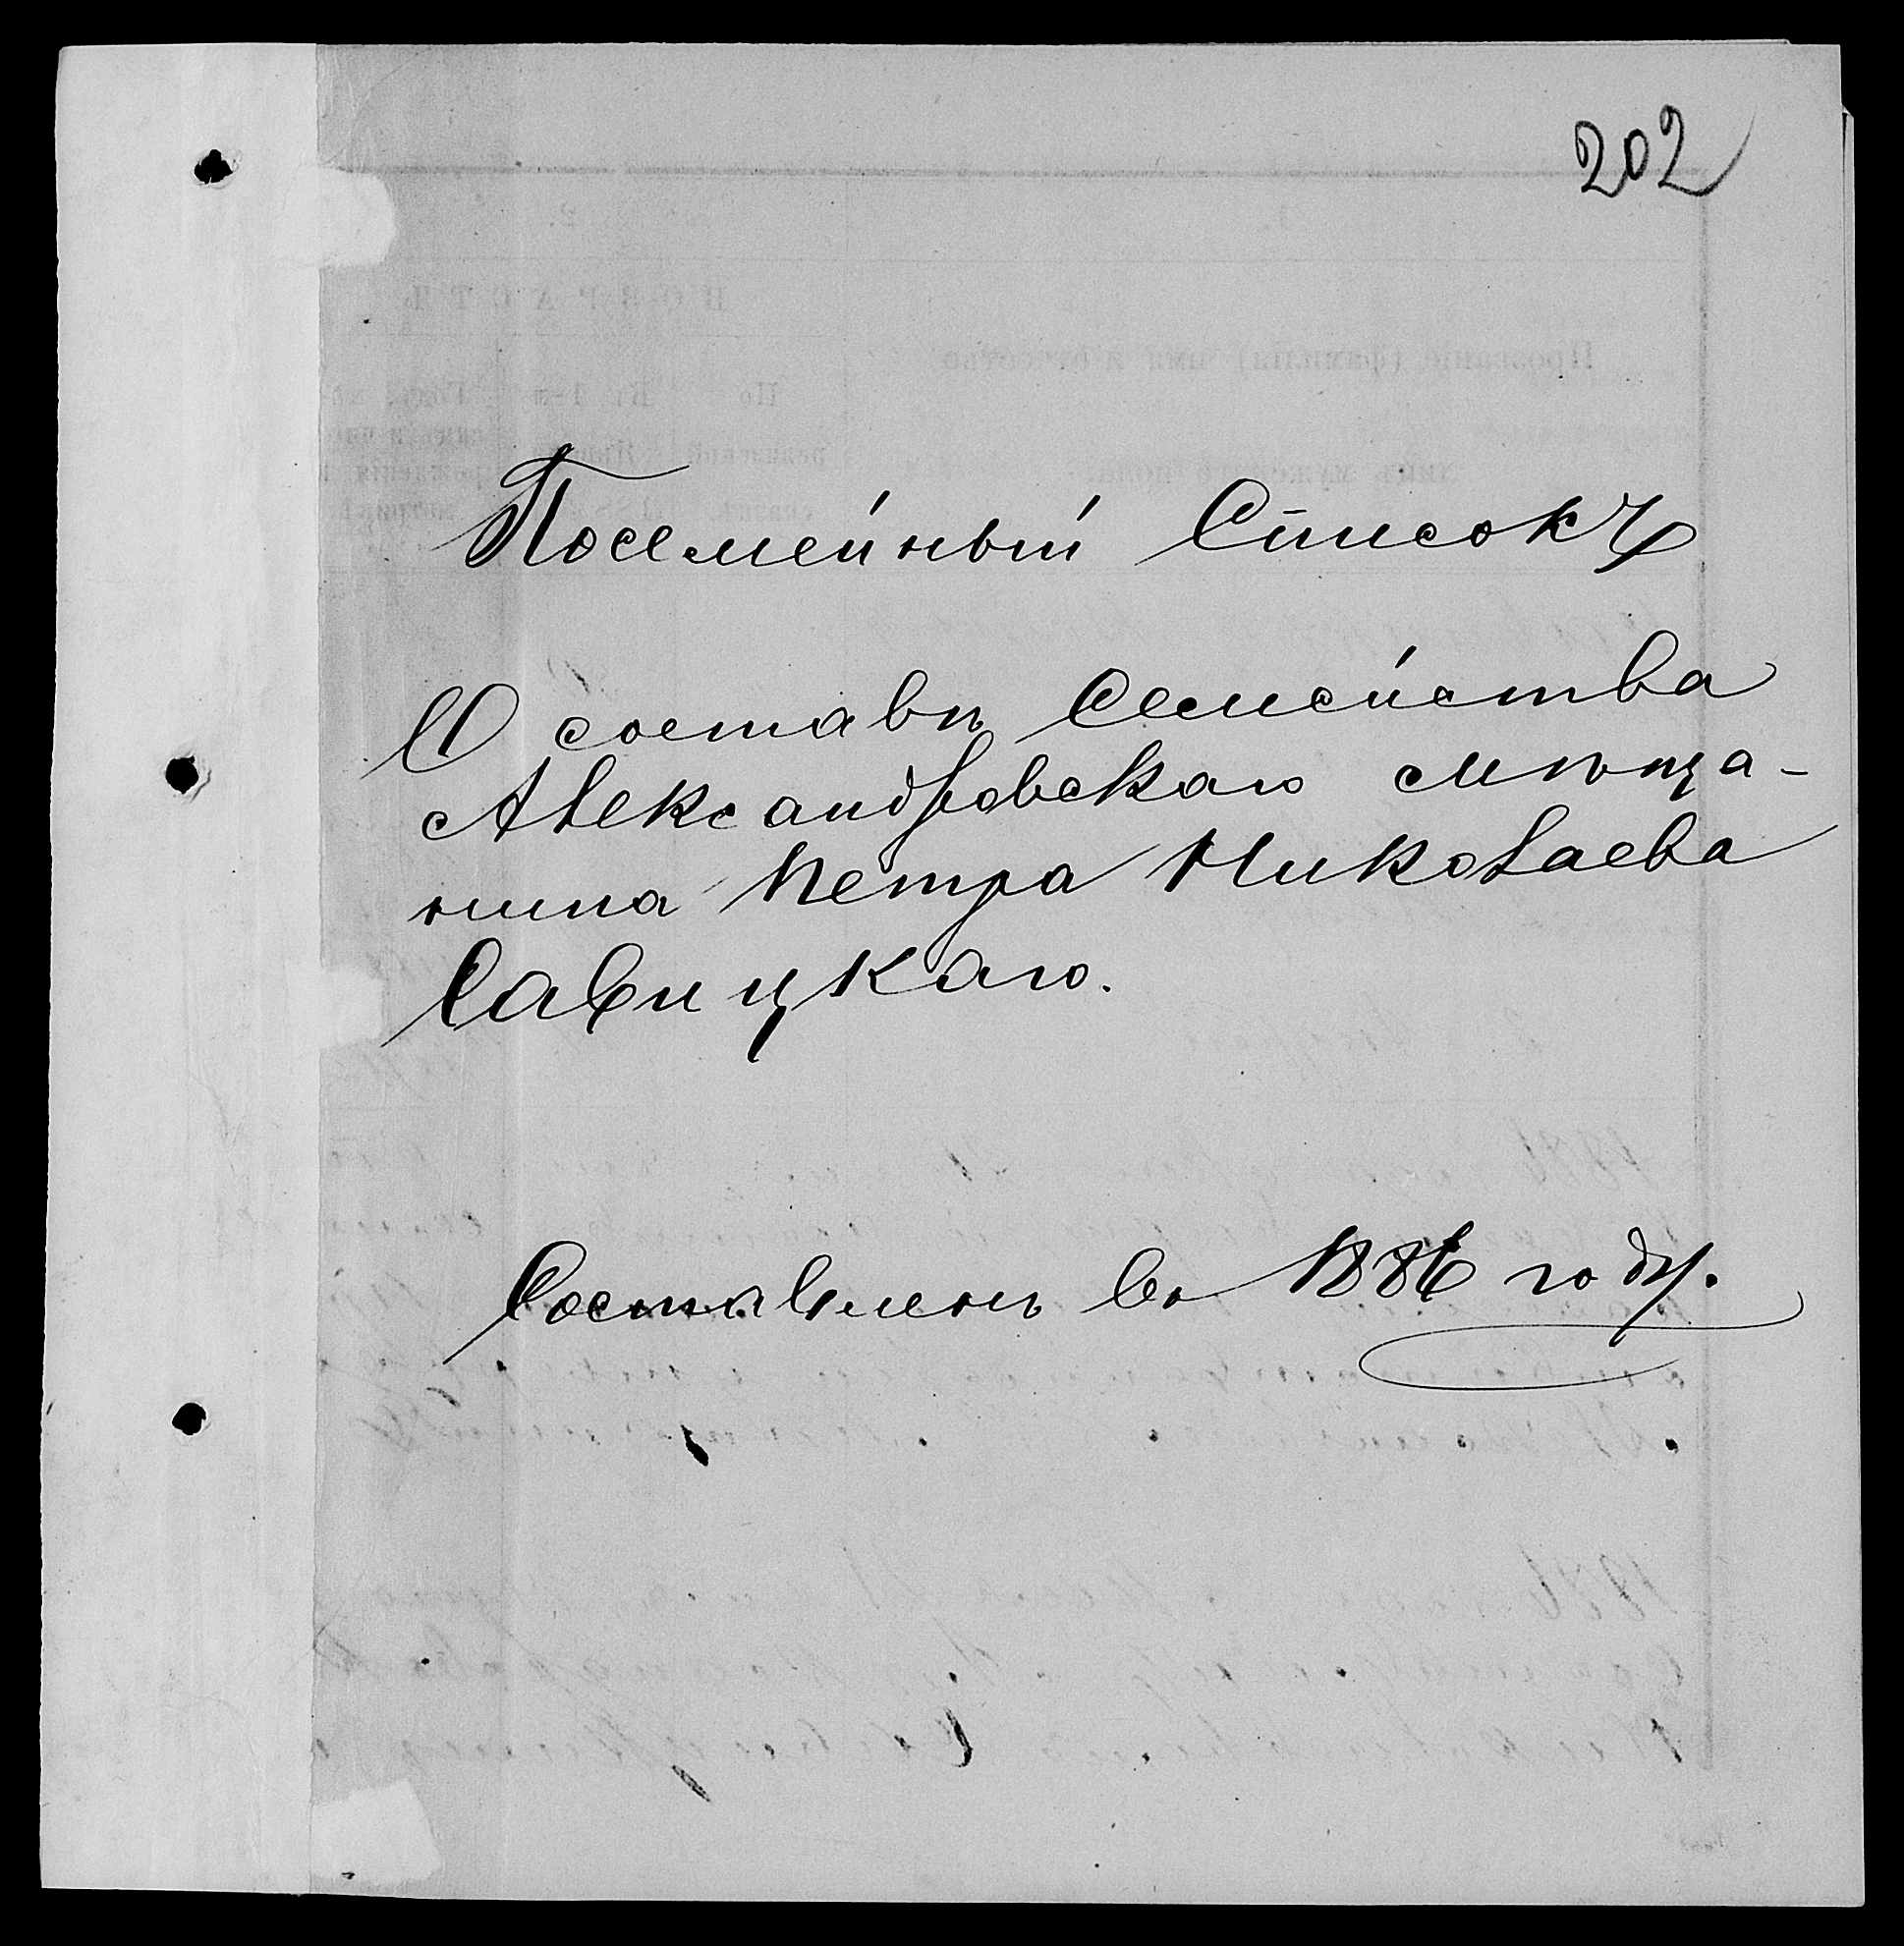 202
Посемейный Списокъ
О составѣ Семейства
Александровскаго мѣща-
нина Петра Николаева
Савицкаго.
Составленъ въ 1886 году.